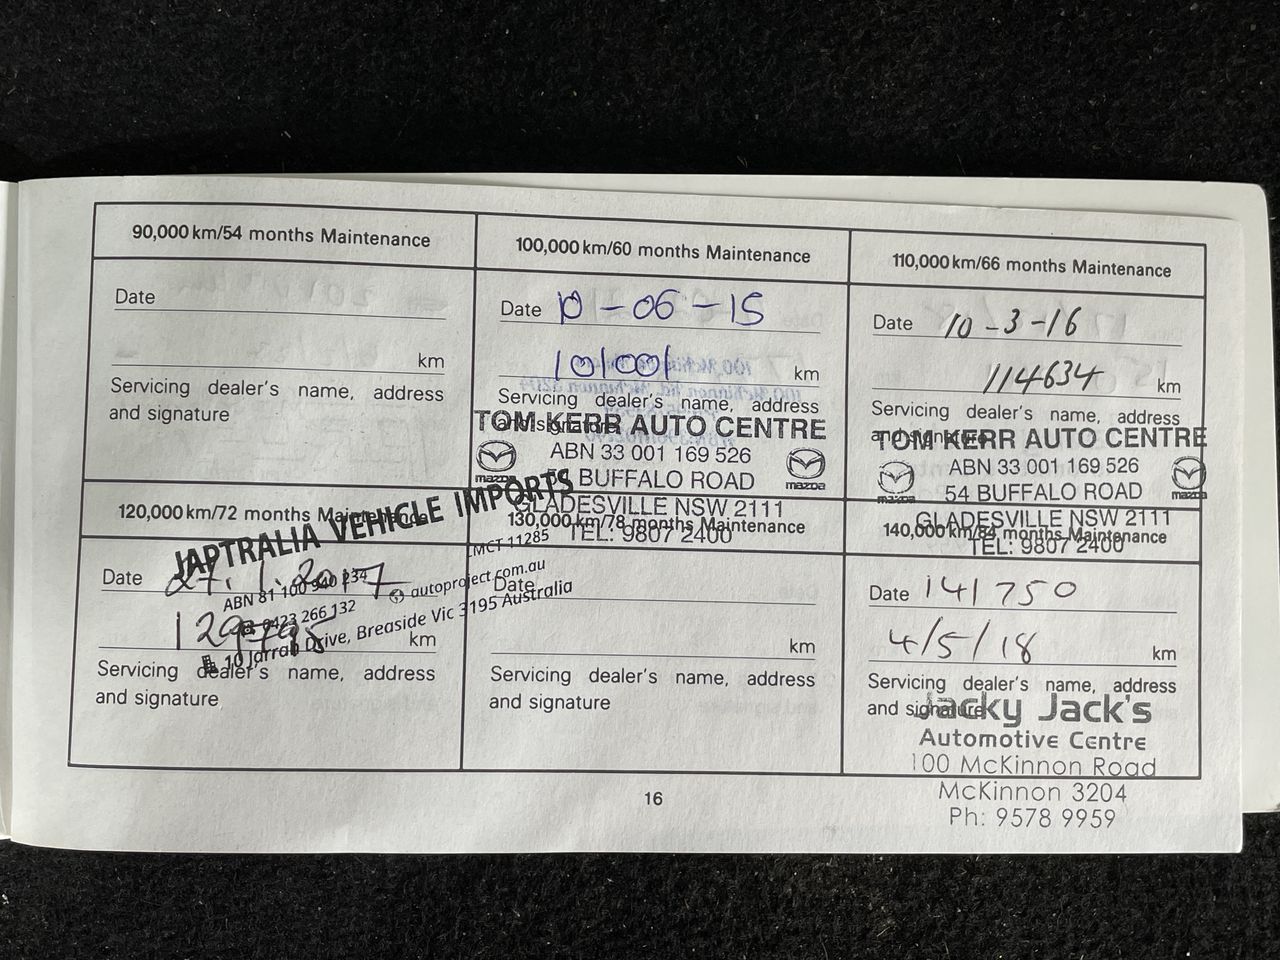 90,000 km/54 months Maintenance
Date
km
Servicing dealer's name, address
and signature
100,000 km/60 months Maintenance
Date 10-06-15
101001 km
Servicing dealer's name, address
and signature
TOM KERR AUTO CENTRE
ABN 33 001 169 526
mazda 54 BUFFALO ROAD mazda
GLADESVILLE NSW 2111
TEL: 9807 2400
110,000 km/66 months Maintenance
Date 10-3-16
114634 km
Servicing dealer's name, address
and signature
TOM KERR AUTO CENTRE
ABN 33 001 169 526
mazda 54 BUFFALO ROAD mazda
GLADESVILLE NSW 2111
TEL: 9807 2400
120,000 km/72 months Maintenance
JAPTRALIA VEHICLE IMPORTS
LMCT 11285
ABN 81 100 940 234
autoproject.com.au
0423 266 132
10 Jarrah Drive, Breaside Vic 3195 Australia
Date 27.1.2017
km
Servicing dealer's name, address
and signature
130,000 km/78 months Maintenance
Date
km
Servicing dealer's name, address
and signature
140,000 km/84 months Maintenance
Date 141750
4/5/18 km
Servicing dealer's name, address
and signature
Jacky Jack's
Automotive Centre
100 McKinnon Road
McKinnon 3204
Ph: 9578 9959
16